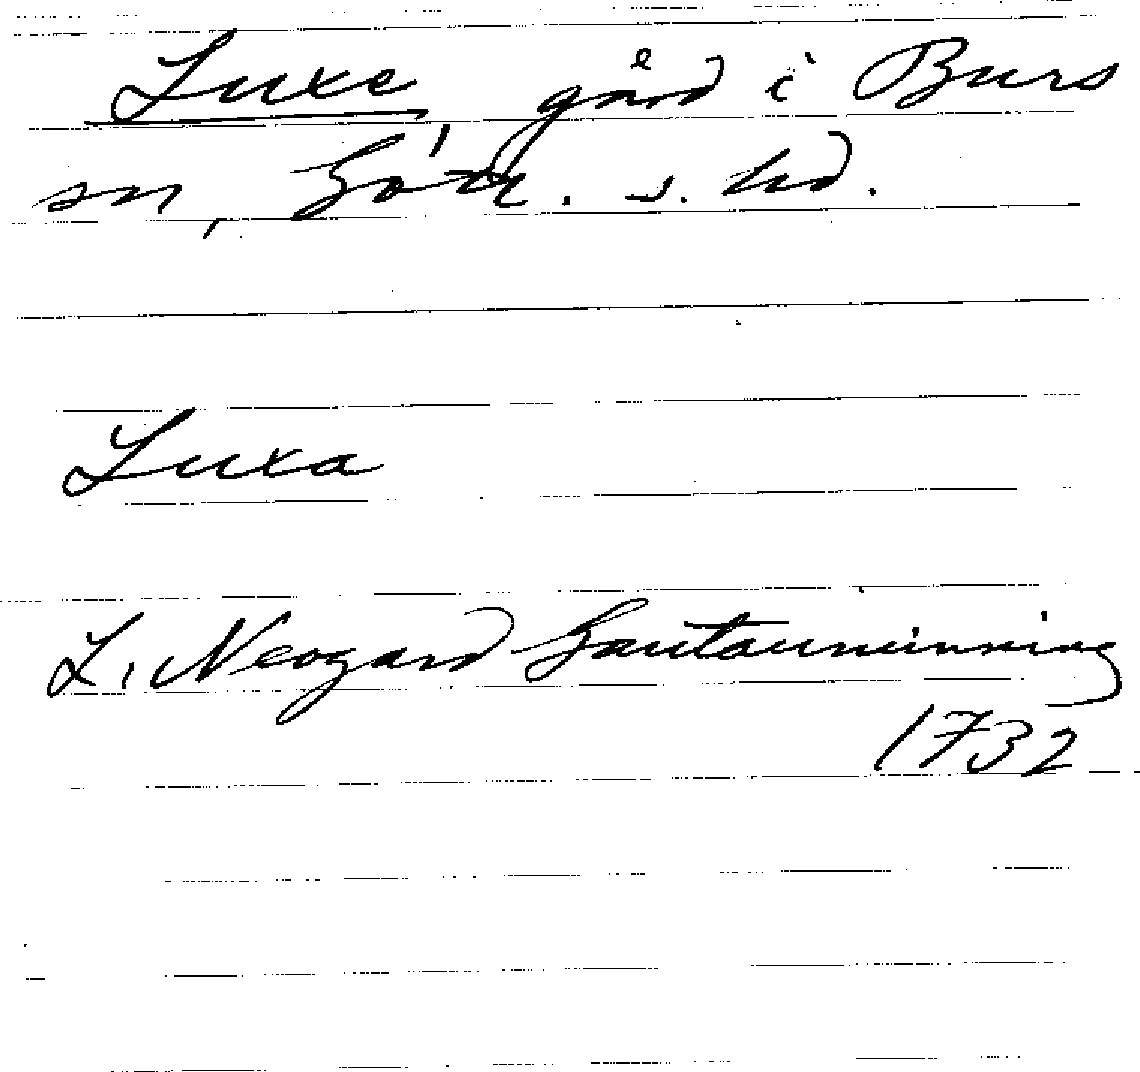 Luxe, gård i Burs
sn, Gotl. s. hd.
Luxa
L. Neogard Gautauminning
1732